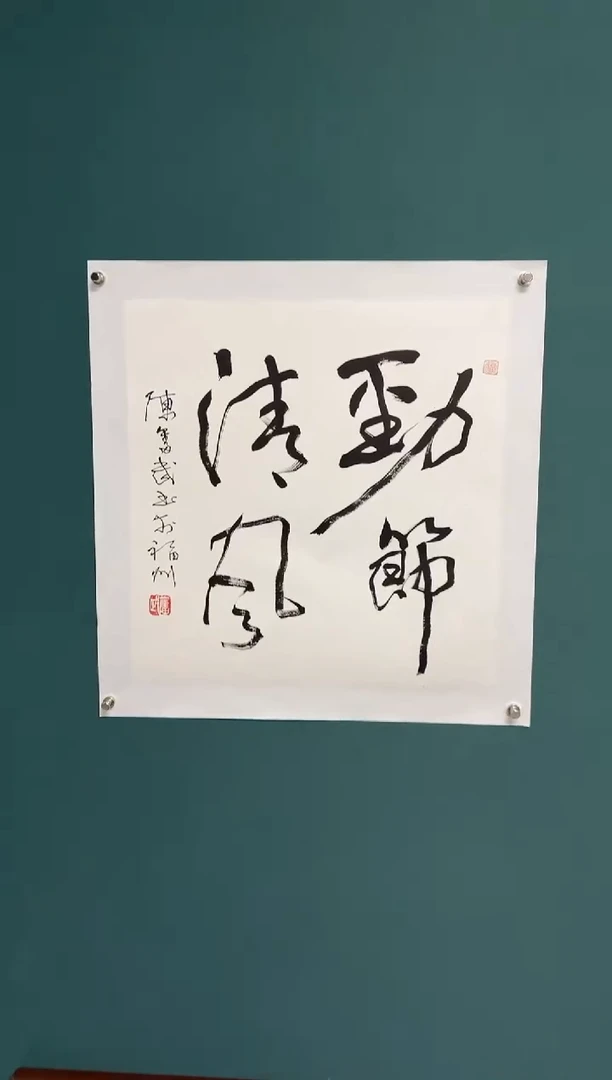 勁節
清風
陳奮武書於福州